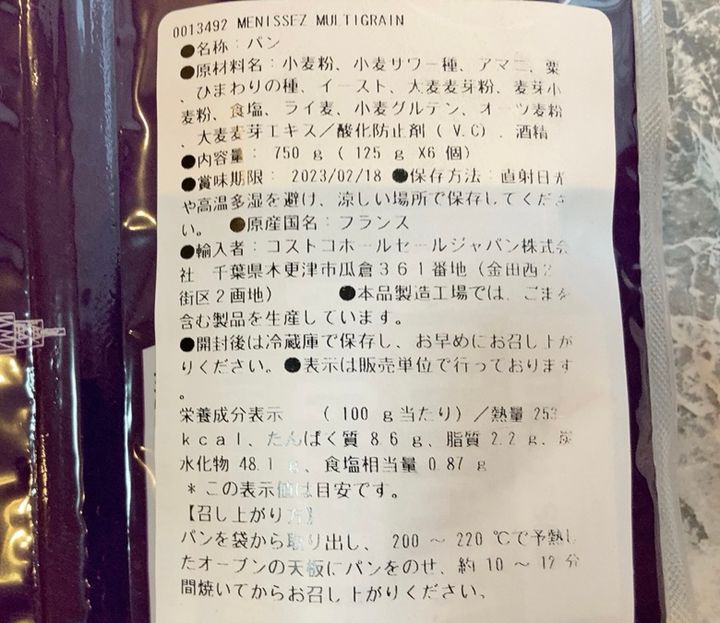 0013492 MENISSEZ MULTIGRAIN
●名称：パン
●原材料名：小麦粉、小麦サワー種、アマニ、粟
、ひまわりの種、イースト、大麦麦芽粉、麦芽小
麦粉、食塩、ライ麦、小麦グルテン、オーツ麦粉
、大麦麦芽エキス／酸化防止剤（V.C）、酒精
●内容量： 750 g（ 125 g X6 個）
●賞味期限： 2023/02/18 ●保存方法：直射日光
や高温多湿を避け、涼しい場所で保存してくださ
い。 ●原産国名：フランス
●輸入者：コストコホールセールジャパン株式会
社 千葉県木更津市瓜倉３６１番地（金田西2
街区２画地） ●本品製造工場では、ごまを
含む製品を生産しています。
●開封後は冷蔵庫で保存し、お早めにお召し上が
りください。●表示は販売単位で行っております
。
栄養成分表示 （ 100 g 当たり）／熱量 253
kcal、たんぱく質 8.6 g、脂質 2.2 g、炭
水化物 48.1 g、食塩相当量 0.87 g
＊この表示値は目安です。
【召し上がり方】
パンを袋から取り出し、 200 ～ 220 ℃で予熱し
たオーブンの天板にパンをのせ、約 10 ～ 12 分
間焼いてからお召し上がりください。